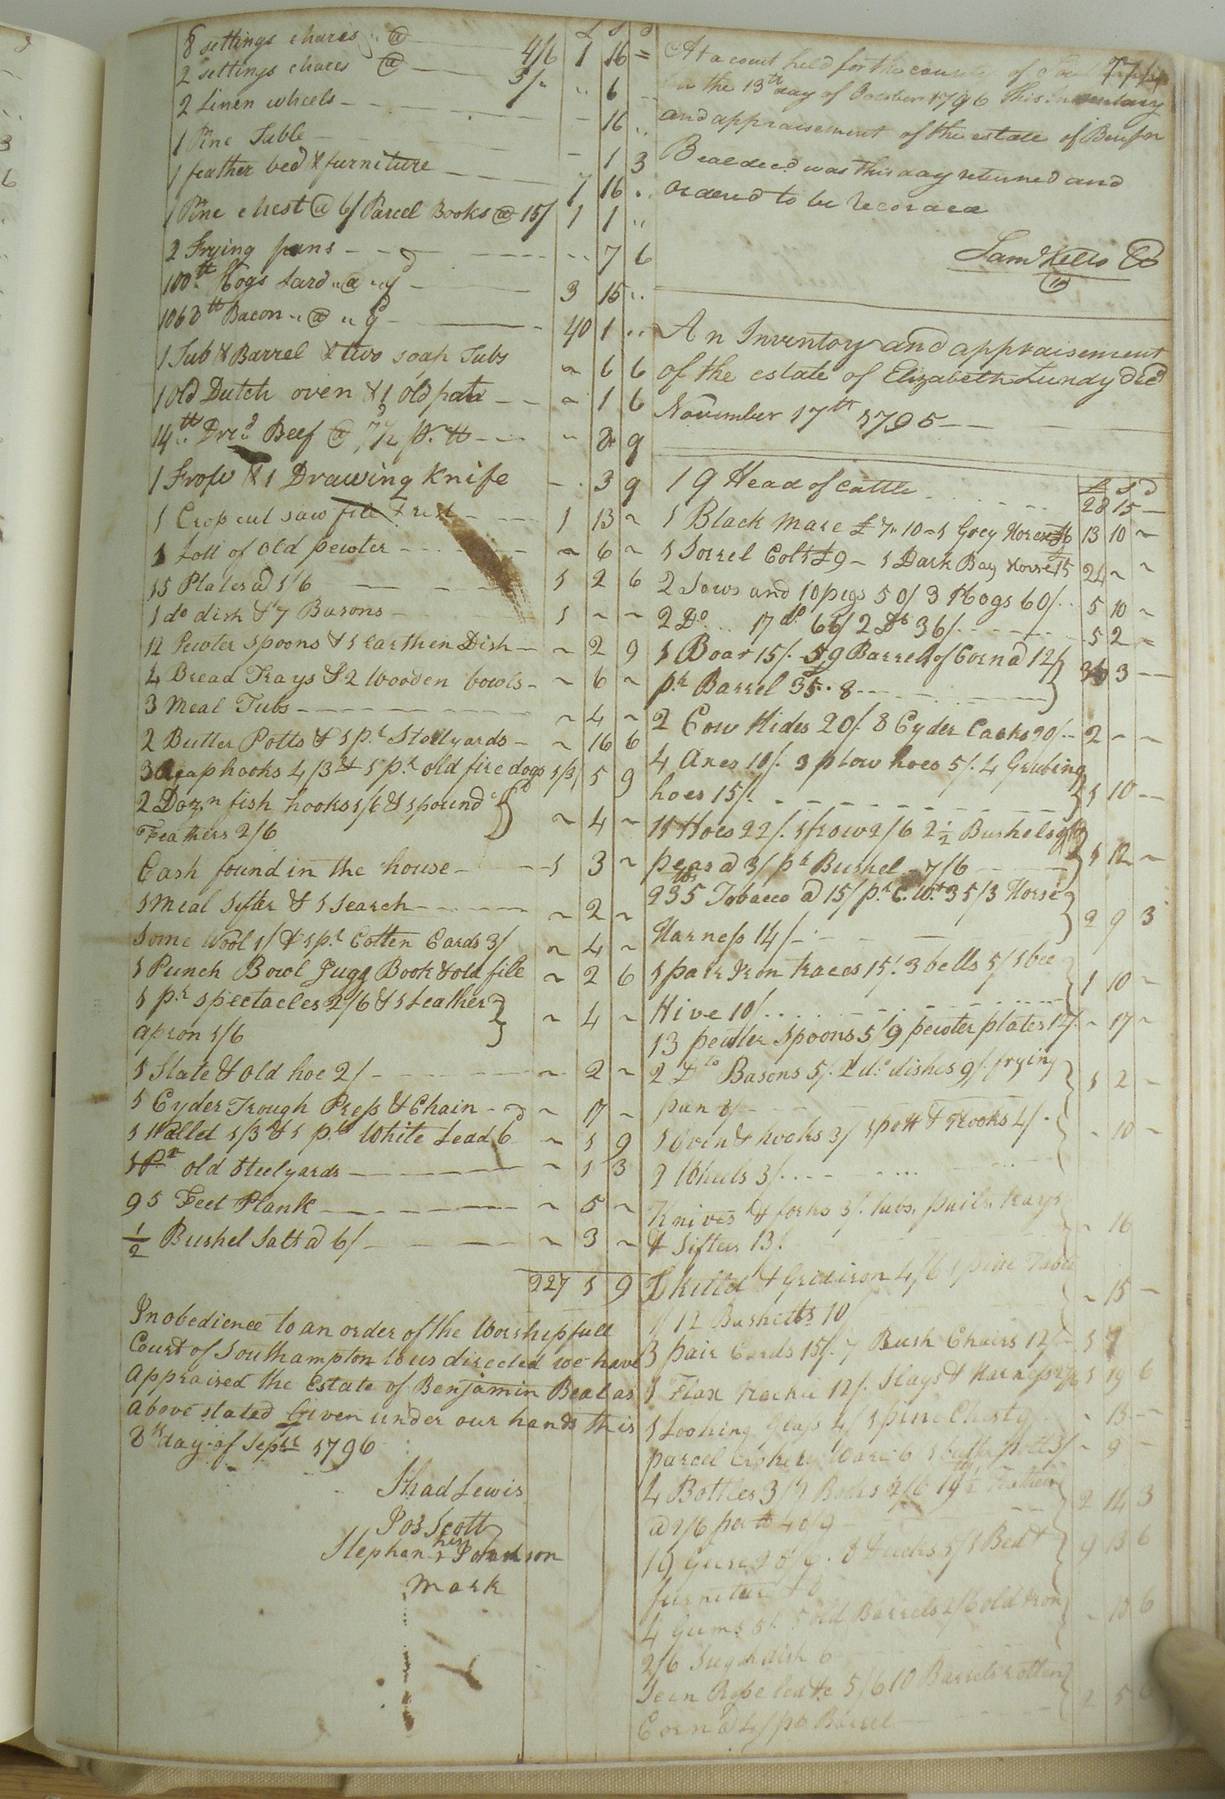 £ S d
8 settings chares @ 4/6 1 16 =
2 settings chares @ 3/ " 6
2 Linen wheels - 16 "
1 Pine Table - 1 3
1 feather bed & furniture 7 16 "
1 Pine chest @ 6/ Parcel Books @ 15/ 1 1 "
2 Frying pans - " 7 6
100 lb Hogs Lard @ 9d 3 15 "
1068 lb Bacon @ 9 40 1 "
1 Tub & Barrel & two soap Tubs ~ 6 6
1 Old Dutch oven & 1 old pott ~ 1 6
14 lb Dr'd Beef @ 7½ pr. lb - " 8 9
1 Frow & 1 Drawing Knife - 3 9
1 Crop cut saw file & rest 1 13 ~
1 Lott of old pewter ~ 6 ~
15 Plates @ 1/6 1 2 6
1 do dish & 7 Basons 1 ~ ~
12 Pewter spoons & 1 earthen Dish ~ 2 9
4 Bread Trays & 2 Wooden bowls ~ 6 ~
3 Meal Tubs ~ 4 ~
2 Butter Potts & 1 pr Stillyards ~ 16 6
3 Reaphooks 4/3 & 1 pr old fire dogs 1/3 5 9
2 Doz,n fish hooks 1/6 & 1 pound
Feathers 2/6 ~ 4 ~
Cash found in the house 1 3 ~
1 Meal Sifter & 1 Search ~ 2 ~
Some Wool 1/ & 1 pr Cotten Cards 3/ ~ 4 ~
1 Punch Bowl Jugg Book & old file ~ 2 6
1 pr spectacles 2/6 & 1 Leather
apron 1/6 ~ 4 ~
1 Slate & old hoe 2/ ~ 2 ~
1 Cyder Trough Press & Chain ~ 17 ~
1 Wallet 1/3 & 1 White Lead 6 ~ 1 9
1 Pr old steelyards ~ 1 3
95 Feet Plank ~ 5 ~
½ Bushel Salt @ 6/ ~ 3 ~
227 5 9
In obedience to an order of the Worshipfull
Court of Southampton to us directed we have
appraised the Estate of Benjamin Beal as
above stated Given under our hands this
8th day of Septr 1796
Thad Lewis
Jos Scott
Stephen his x Johnson
mark
At a court held for the county of
on the 13th day of October 1796 This Inventary
and appraisement of the estate of Benj'm
Beal dec'd was this day returned and
ordered to be recorded
Sam'l Kello
An Inventory and appraisement
of the estate of Elizabeth Lundy Dec'd
November 17th 1795
£ S d
19 Head of Cattle 28 15 —
1 Black Mare £7-10- 1 Grey Horse £6 13 10 ~
1 Sorrel Colt £9 - 1 Dark Bay Horse £15 24 ~ ~
2 Sows and 10 pigs 50/ 3 Hogs 60/ 5 10 ~
2 Do 17 do 66/ 2 Do 36/ 5 2 =
1 Boar 15/ 59 Barrels of Corn @ 12/
pr Barrel 35.8 36 3 —
2 Cow Hides 20/. 8 Cyder Casks 20/ 2 - -
4 Axes 10/. 3 plow hoes 5/. 4 Grubing
hoes 15/. 1 10 —
11 Hoes 22/. 1 frow 2/6 2½ Bushels
peas @ 3/ pr Bushel 7/6 1 12 ~
235 Tobacco @ 15/ pr C. Wt. 35/3 Horse
Harness 14/ 2 9 3
1 pair Iron traces 15/. 3 bells 5/ 1 bee
Hive 10/. 1 10 ~
13 pewter Spoons 5/ 9 pewter plates 12/. ~ 17 ~
2 Do Basons 5/. 2 do dishes 9/. frying
pan 8/ 1 2 ~
1 Oven & hooks 3/ 1 pott & Hooks 4/.
2 Wheels 3/ ~ 10 ~
Knives & forks 3/. tubs, pails, trays
& Sifters 13/. ~ 16
1 Skillet & Gridiron 4/6 1 pine table
12 Busketts 10/ ~ 15 ~
3 pair Cards 15/. 7 Rush Chairs 12/ 1 7
1 Flax Hackle 12/. Slays & Harness 1 19 6
1 Looking Glass 4/ 1 pine Chest 9/ ~ 13 —
parcel Crokery Ware 6/ 1 butter pott 3/ ~ 9 ~
4 Bottles 3/ Books 2/6 Feathers
@ 2/6 per lb 2 14 3
19 Geese 8 Ducks 1 Bed &
furniture 9 13 6
4 Gums 5/. 5 old Barrels 2/6 old Iron
2/6 Sugar dish 6 ~ 10 6
Sein Rope lead &c 5/6 10 Barrels rotten
Corn @ 4/ pr Barrel 2 5 6